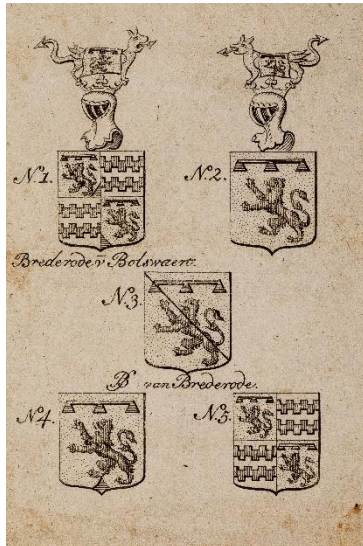 No1.
No2.
Brederode v̄ Bolswaert.
No3.
B van Brederode.
No4.
No5.